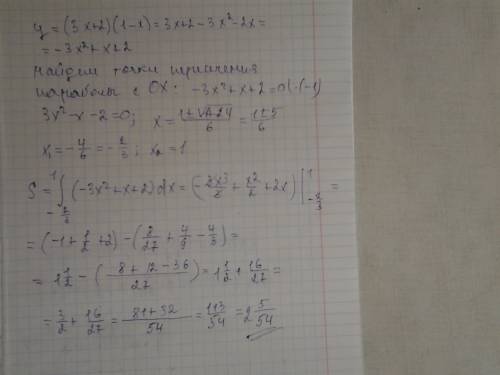 y = (3x+2)(1-x) = 3x+2-3x²-2x =
= -3x²+x+2
найдем точки пересечения
параболы с OX: -3x²+x+2=0 | ·(-1)
3x²-x-2=0; x = (1±√1+24)/6 = (1±5)/6
x₁ = -4/6 = -2/3; x₂ = 1
S = ∫_{-2/3}^{1} (-3x²+x+2)dx = (-3x³/3 + x²/2 + 2x) |_{-2/3}^{1} =
= (-1+1/2+2) - (8/27 + 4/9 - 4/3) =
= 1 1/2 - (8+12-36)/27 = 1 1/2 + 16/27 =
= 3/2 + 16/27 = (81+32)/54 = 113/54 = 2 5/54